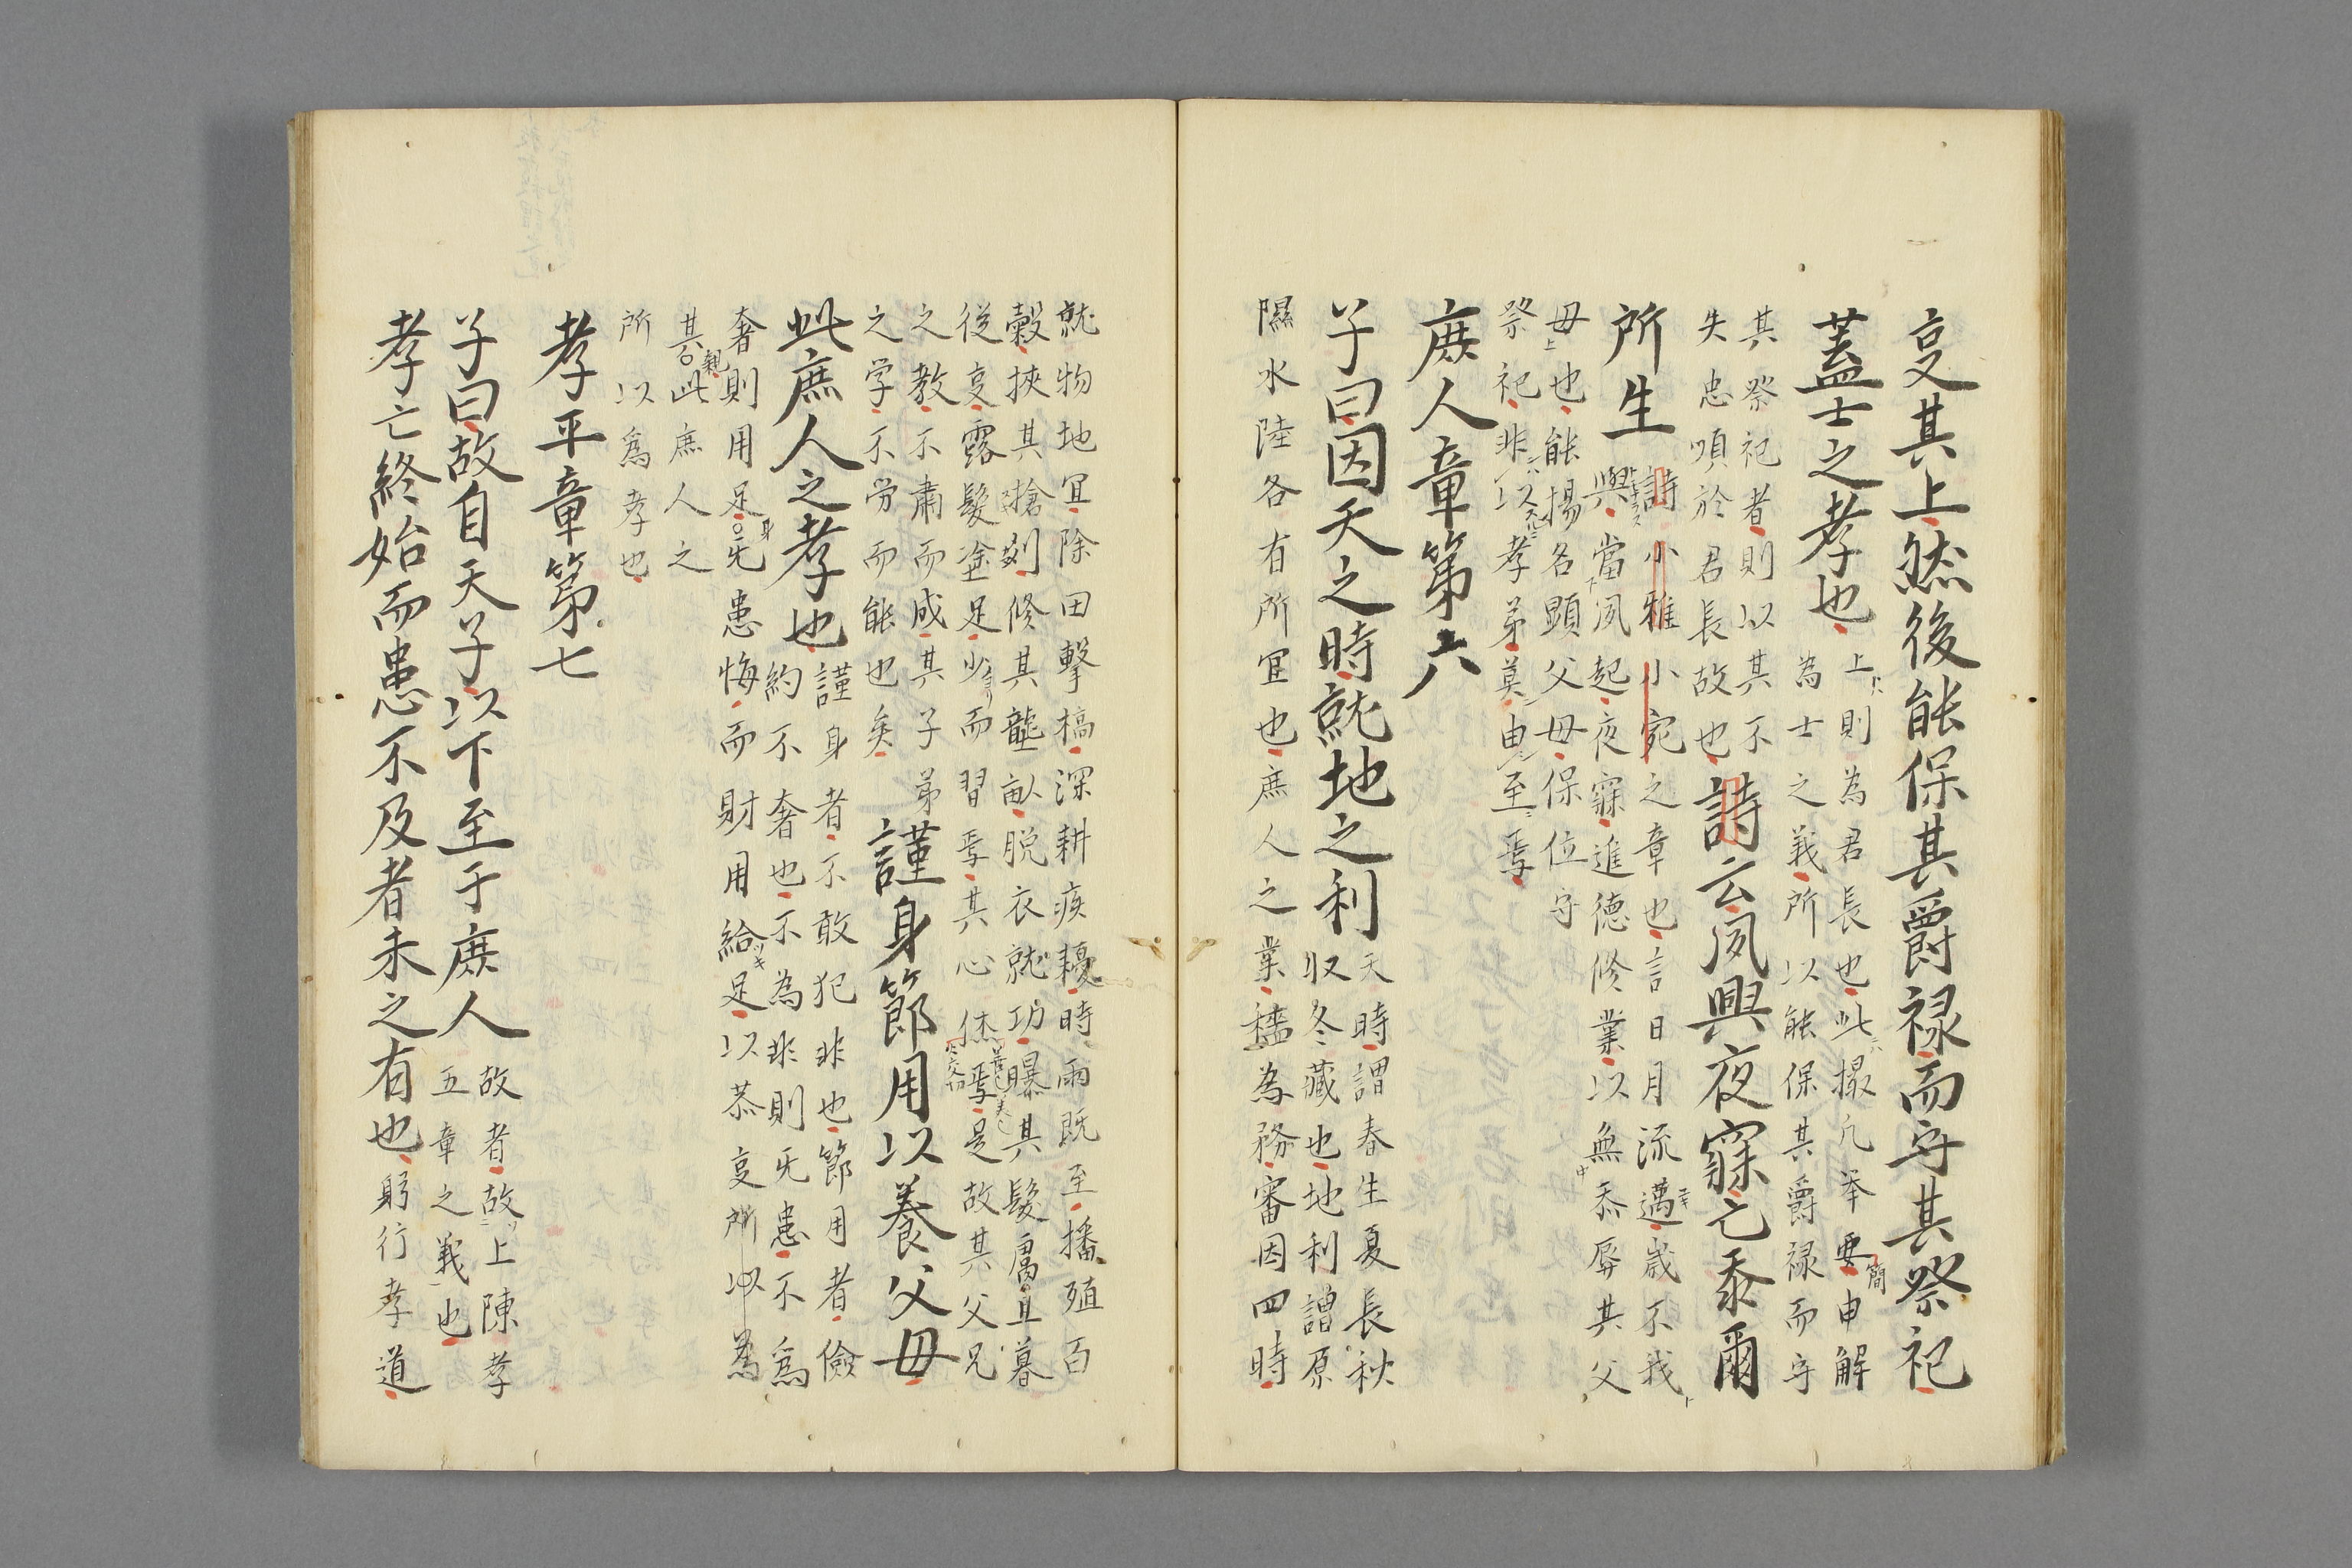 㕝其上然後能保其爵禄而守其祭祀
蓋士之孝也上則為君長也此撮凢举要申解
為士之義所以能保其爵禄而守
其祭祀者則以其不
失忠順於君長故也詩云夙興夜寐亡忝爾
所生詩小雅小宛之章也言日月流邁歳不我
與當夙起夜寐進德修業以無忝辱其父
母也能揚名顕父母保位守
祭祀非以孝弟莫由至焉
庶人章第六
子曰因天之時就地之利天時謂春生夏長秋
収冬藏也地利謂原
隰水陸各有所宜也庶人之業穡為務審因四時
就物地宜除田擊槁深耕疾耰時雨既至播殖百
穀挾其搶刈修其壟畝脱衣就功曝其髪膚旦暮
從㕝露髪塗足少而習焉其心休焉是故其父兄
之教不肅而成其子弟
之学不労而能也矣謹身節用以養父母
此庶人之孝也謹身者不敢犯非也節用者儉
約不奢也不為非則旡患不為
奢則用足身旡患悔而財用給足以恭㕝所以為
其親此庶人之
所以為孝也
孝平章第七
子曰故自天子以下至于庶人故者故上陳孝
五章之義也
孝亡終始而患不及者未之有也躬行孝道